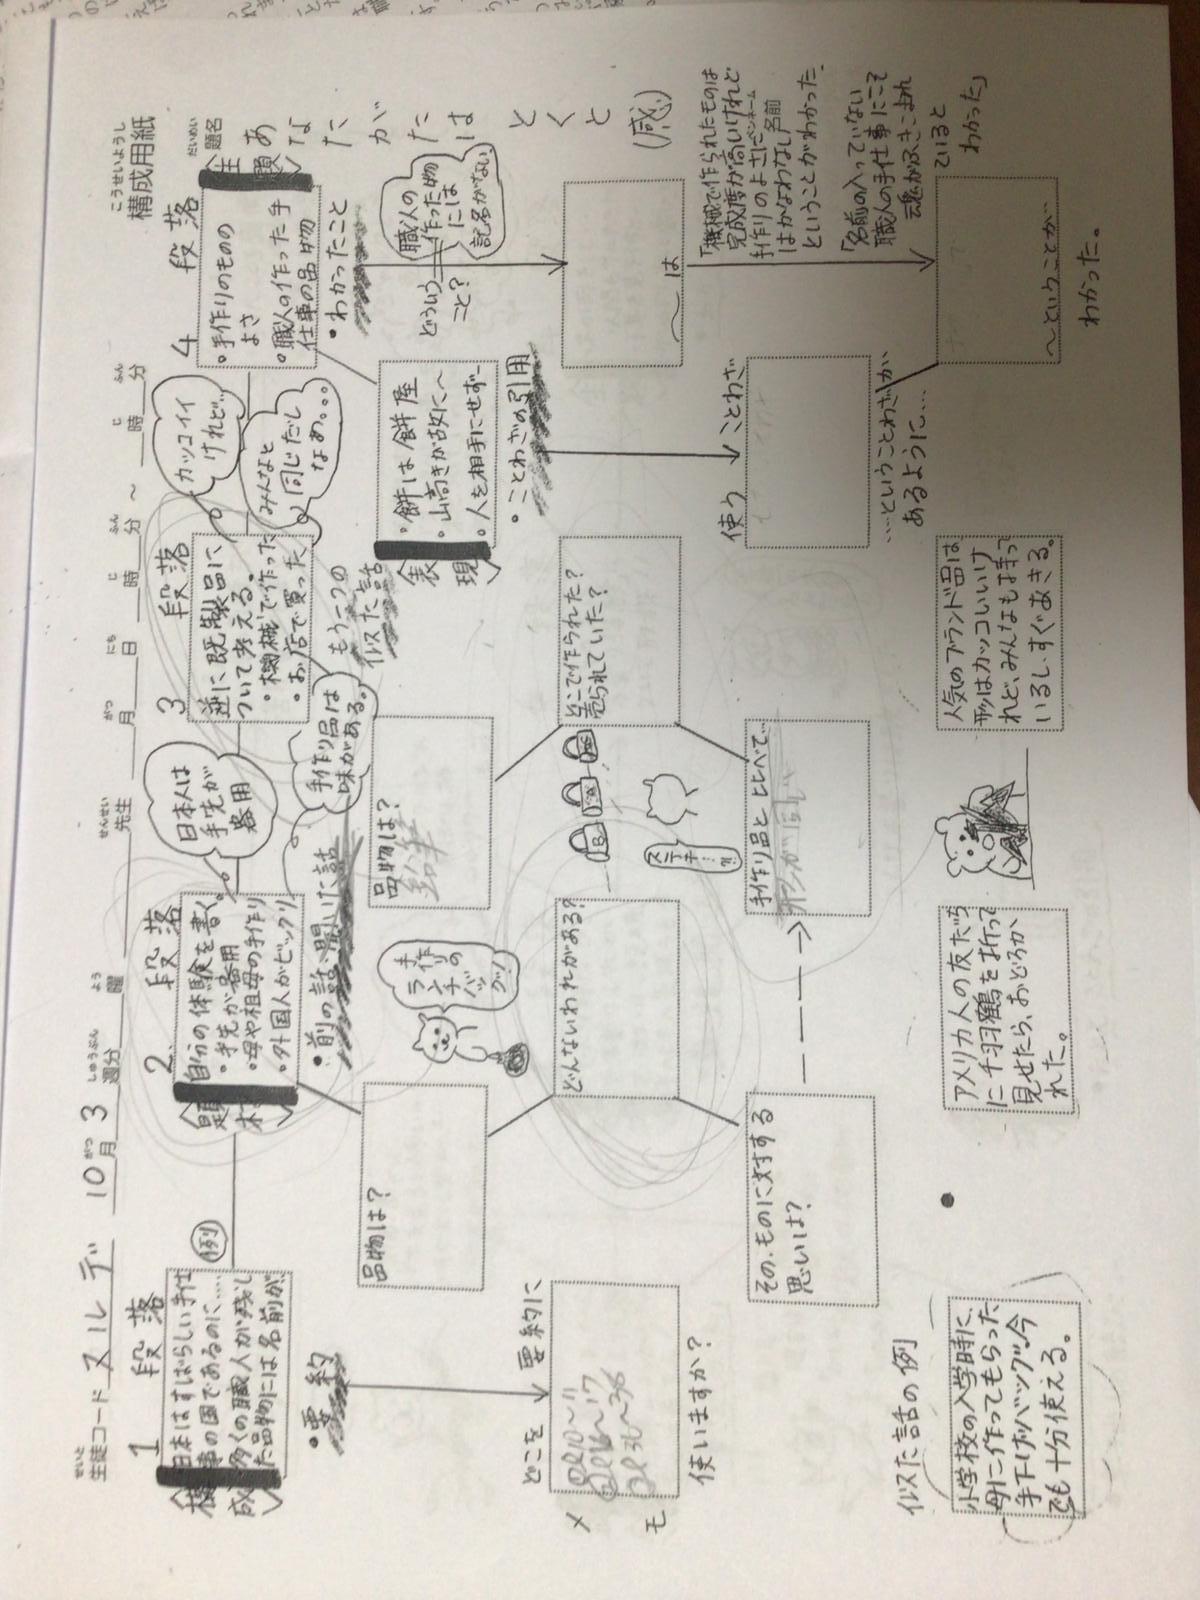 構成用紙
生徒コード ヌルデ 10月3週分 曜 先生 月 日 時 分 ~ 時 分
題名 あなたがたはとくと(感)
1段落
構成
日本はすばらしい手仕
事の国であるのに……
多くの職人が残し
た品物には名前が、
・要約
どこを要約に
使いますか?
メモ
例
2.段落
題材
自分の体験を書く。
・手先が器用
・母や祖母の手作り
・外国人がビックリ
・前の話、聞いた話
日本人は
手先が
器用
手作り品は
味がある。
品物は?
手作りの
ランチ
バッグ!
どんないわれがある?
そのものに対する
思いは?
3段落
並に既製品に
ついて考える。
・機械で作った
・お店で買った
もう一つの
似た話
カッコイイ
けれど…
みんなと
同じだし
なぁ。。。
品物は?
鉛筆
どこで作られた?
売られていた?
ステキ…?!
手作り品とくらべて…
4段落
主題
・手作りのものの
よさ
・職人の作った手
仕事の品物
・わかったこと
どういう
こと?
職人の
作った物
には
記名がない
〜は
「機械で作られたものは
完成度が高いけれど
手作りのよさに
はかなわない」
ということがわかった。
「名前の入っていない
職人の手仕事にこそ
魂が吹きこまれ
ていると
わかった」
〜ということが
わかった。
表現
・餅は餅屋
・山高きが故に〜
・人を相手にせず〜
・ことわざの引用
使うことわざ
…ということわざが
あるように…
似た話の例
小学校の入学時に、
母に作ってもらった
手下げバッグ。今
でも十分使える。
アメリカ人の友だち
に千羽鶴を折って
見せたら、おどろか
れた。
人気のブランド品は
形はカッコいいけ
れど、みんなも持って
いるし、すぐあきる。